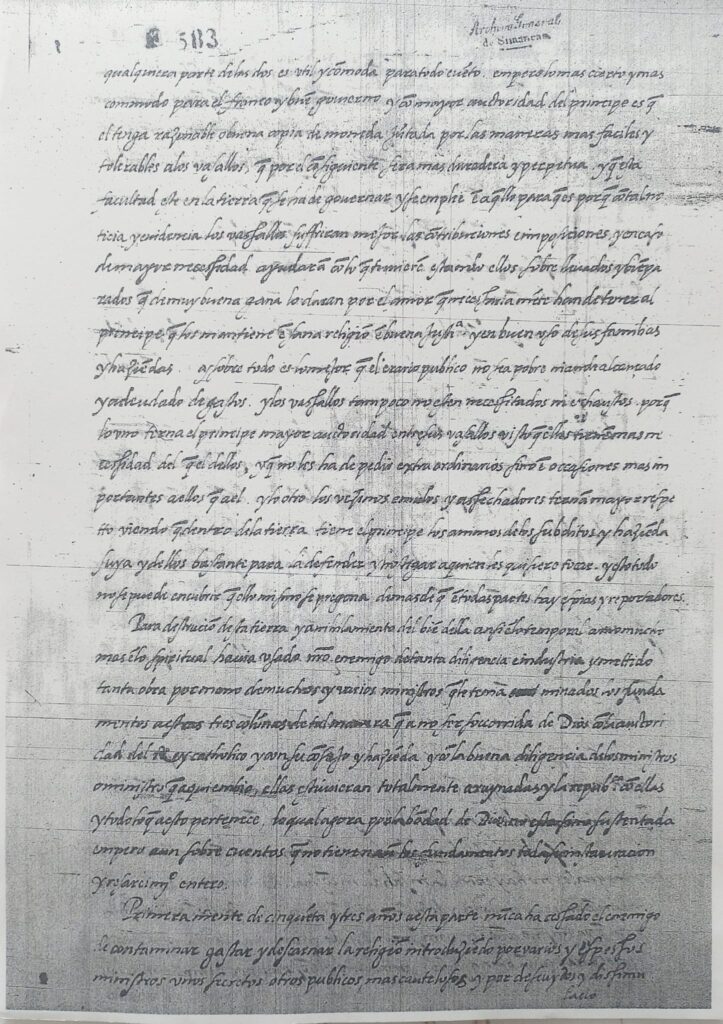 583
Archivo General
de Simancas
qualquiera parte de las dos es util y cōmoda para todo eueto. empero lo mas cierto y mas
commodo para el franco y buē gouierno y cō mayor auctoridad del principe es q̄
el tenga razonable o buena copia de moneda juntada por las maneras mas faciles y
tolerables a los vasallos, q̄ por el cōsiguiente sera mas duradera y perpetua, y q̄ esta
facultad este en la tierra q̄ se ha de gouernar y se emplee ē aq̄llo para q̄ es porq̄ cō tal no
ticia y euidencia los vassallos suffriran mejor las cōtribuciones e imposiciones, y en caso
de mayor necessidad ayudarā cō lo q̄ tuuierē estando ellos sobre lleuados y bien pa
rados q̄ de muy buena gana lo daran por el amor q̄ necessariamēte han de tener al
principe q̄ los mantiene ē sana religiō ē buena just.ª y en buen vso de sus familias
y haziēdas. assobre todo es lo mejor q̄ el erario publico no sea pobre ni ande alcançado
y adeudado de gastos. y los vassallos tampoco no estē necessitados ni exhaustos. porq̄
lo vno terna el principe mayor auctoridad entre sus vasallos visto q̄ ellos tienē mas ne
cessidad del q̄ el dellos, y q̄ no les ha de pedir extraordinarios sino ē occasiones mas im
portantes a ellos q̄ a el. y lo otro los vezinos emulos y assechadores ternan mayor respe
tto viendo q̄ dentro de la tierra tiene el principe los animos de los subditos y haziēda
suya y dellos bastante para la defender y hostigar a quien les quisiere tocar. y esto todo
no se puede encubrir q̄ ello mismo se pregona demas de q̄ ē todas partes hay espias y reportadores.
Para destruciō desta tierra y anihilamiento del biē della ansi ē lo temporal como mucho
mas ē lo spiritual hauia vsado nr̄o enemigo de tanta diligencia e industria y mettido
tanta obra por mano de muchos y varios ministros q̄ le tenia minados los funda
mentos a estas tres colūnas de tal manera q̄ a no ser socorrida de Dios cō la auctori
dad del Rey catholico y con su cōsejo y haziēda y cō la buena diligencia de los ministros
o ministro q̄ aqui embio, ellas estuuieran totalmente arruynadas y la repub.ca cō ellas
y todo lo q̄ a esto pertenece, lo qual agora por la bōdad de Dios esta sustentada
empero aun sobre cuentos q̄ no tienen los fundamentos instauracion
y resarcimi.o entero.
Primeramēte de cinquēta y tres años a esta parte nūca ha cessado el enemigo
de contaminar gastar y descarnar la religiō introduziēdo por varios y espessos
ministros vnos secretos otros publicos mas cautelosos, y por descuydos y dissimu
lacio